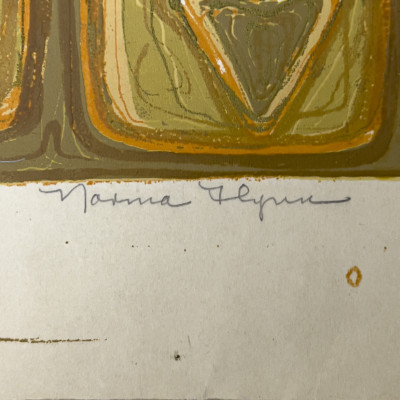 Norma Flynn